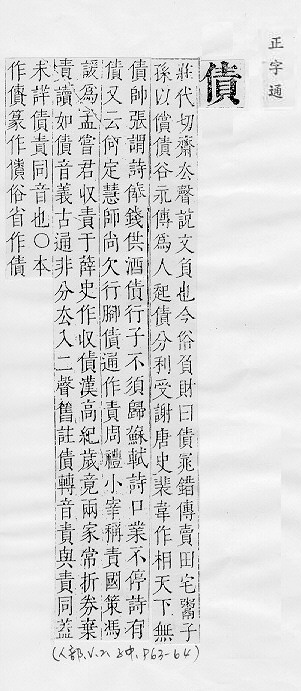 正字通
債
莊代切齋厺聲說文負也今俗負財曰債鼂錯傳賣田宅鬻子
孫以償債谷永傳爲人起債分利受謝唐史裴韋作相天下無
債帥張謂詩能錢供酒債行子不須歸蘇軾詩口業不停詩有
債又云何定慧師尚欠行腳債通作責周禮小宰稱責國策馮
諼爲孟嘗君收責于薛史作收債漢高紀歲竟兩家常折券棄
責讀如債音義古通非分厺入二聲舊註債轉音責與責同葢
未詳債責同音也○本
作篆作俗省作債
(人部, V.2, 中, P63-64)